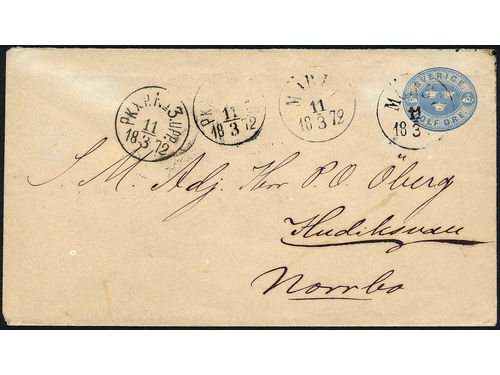 SVERIGE
TOLF ÖRE
PKXP.Nr 3.UPP
11
18 3 72
11
18 3 72
MÄR
11
18 3 72
11
18 3
S. M. Adj. Herr P. O. Öberg
Hudiksvall
Norrbo